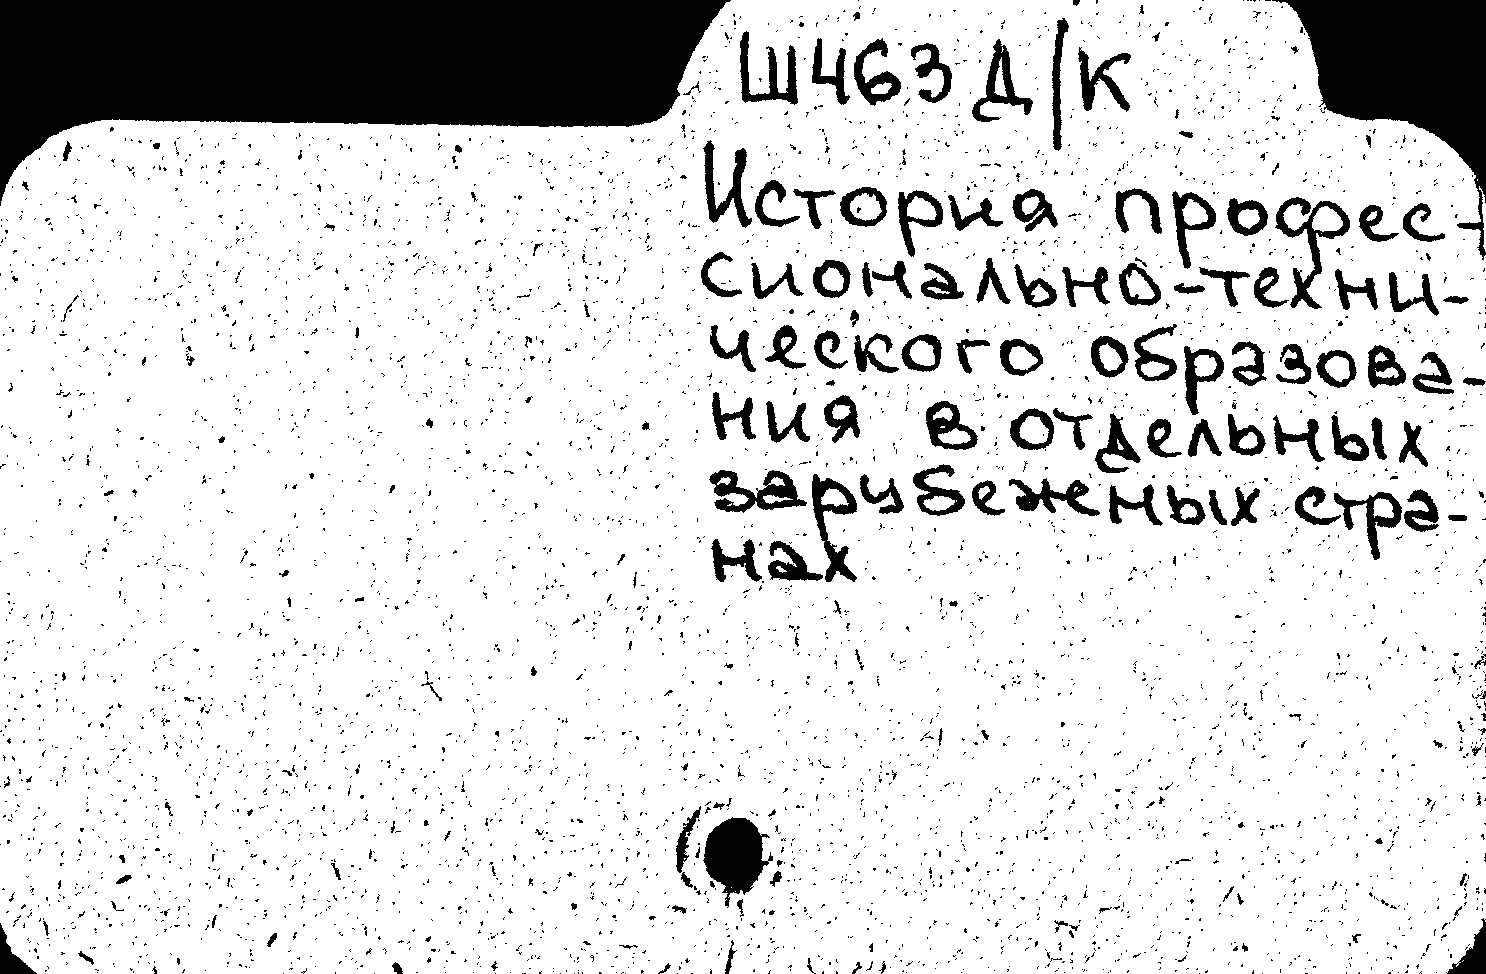 Ш463 Д/К
История профес-
сионально-техни-
ческого образова-
ния в отдельных
зарубежных стра-
нах